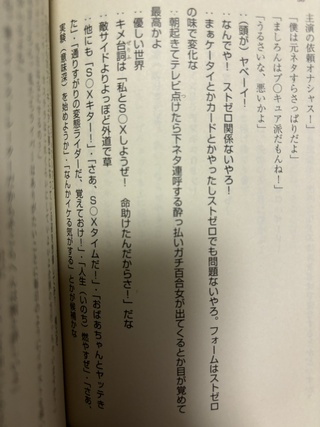 主演の依頼オナシャス！
「僕は元ネタすらさっぱりだよ」
「ましろんはプ〇キュア派だもんね！」
「うるさいな、悪いかよ」
：（頭が）ヤベーイ！
：なんでや！　ストゼロ関係ないやろ！
：まぁケータイとかカードとかやったしストゼロでも問題ないやろ。フォームはストゼロ
の味で変化な
：朝起きてテレビ点けたら下ネタ連呼する酔っ払いガチ百合女が出てくるとか目が覚めて
最高かよ
：優しい世界
：キメ台詞は「私とS〇Xしようぜ！　命助けたんだからさ！」だな
：敵サイドよりよっぽど外道で草
：他にも「S〇Xキター！」・「さあ、S〇Xタイムだ！」・「おばあちゃんとヤッてき
た」・「通りすがりの変態ライダーだ、覚えておけ！」・「人生（いのち）燃やすぜ」・「さあ、
実験（意味深）を始めようか」・「なんかイケる気がする」とかが候補かな